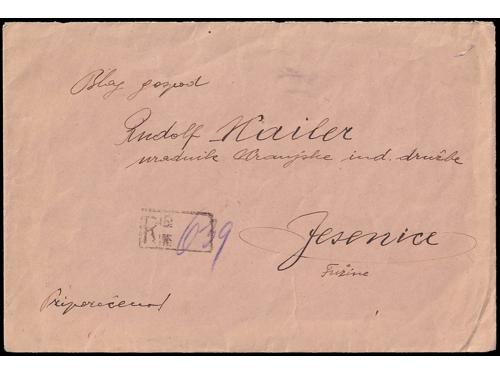 Blag gospod
Rudolf Mailer
uradnik Kranjske ind. družbe
R 639
Jesenice
Fužine
Priporočeno